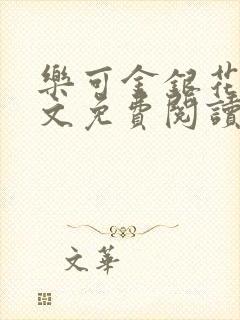 樂可金銀花
文免費閱讀
文華